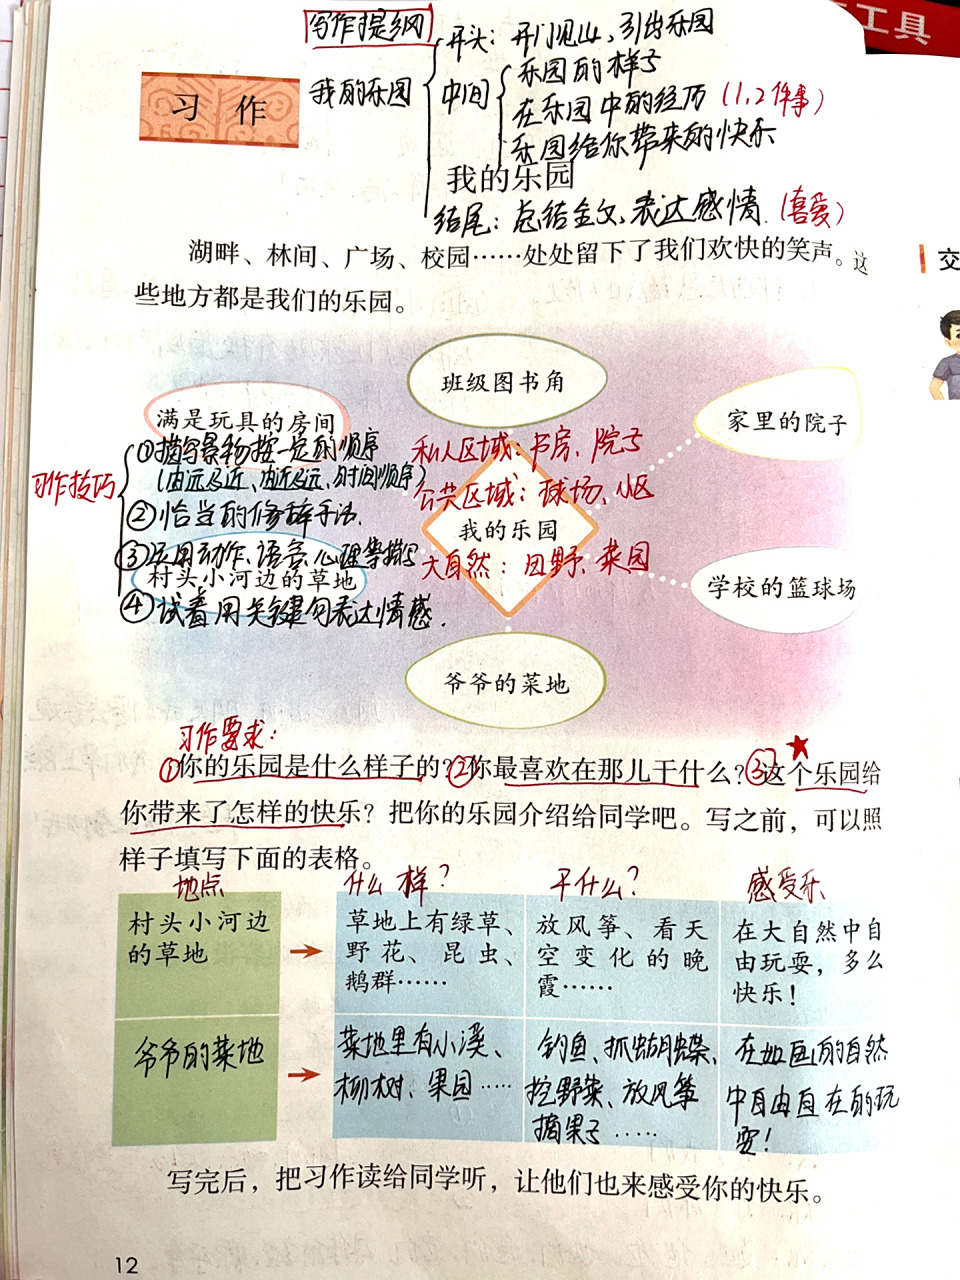 工具
写作提纲
开头：开门见山，引出乐园
我的乐园
中间
乐园的样子
在乐园中的经历（1,2件事）
乐园给你带来的快乐
结尾：总结全文、表达感情.（喜爱）
习 作
我的乐园
湖畔、林间、广场、校园……处处留下了我们欢快的笑声。这
些地方都是我们的乐园。
交
班级图书角
满是玩具的房间
家里的院子
我的乐园
村头小河边的草地
学校的篮球场
爷爷的菜地
习作技巧
①描写景物按一定的顺序
（由远及近、由近及远、时间顺序）
②恰当的修辞手法.
③运用动作、语言、心理等描写
④试着用关键句表达情感.
私人区域：书房、院子
公共区域：球场、小区
大自然：田野、菜园
习作要求：
①你的乐园是什么样子的？②你最喜欢在那儿干什么？③这个乐园给
你带来了怎样的快乐？把你的乐园介绍给同学吧。写之前，可以照
样子填写下面的表格。
地点
什么样？
干什么？
感受乐
村头小河边
的草地
草地上有绿草、
野花、昆虫、
鹅群……
放风筝、看天
空变化的晚
霞……
在大自然中自
由玩耍，多么
快乐！
爷爷的菜地
菜地里有小溪、
柳树、果园……
钓鱼、抓蝴蝶、
挖野菜、放风筝
摘果子……
在如画的自然
中自由自在的玩
耍！
写完后，把习作读给同学听，让他们也来感受你的快乐。
12